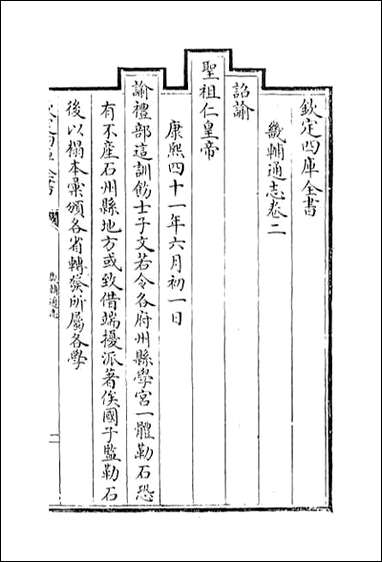 欽定四庫全書
畿輔通志卷二
詔諭
聖祖仁皇帝
康熙四十一年六月初一日
諭禮部這訓飭士子文若令各府州縣學宫一體勒石恐
有不產石州縣地方或致借端擾派著俟國子監勒石
後以搨本彙頒各省轉發所屬各學
畿輔通志